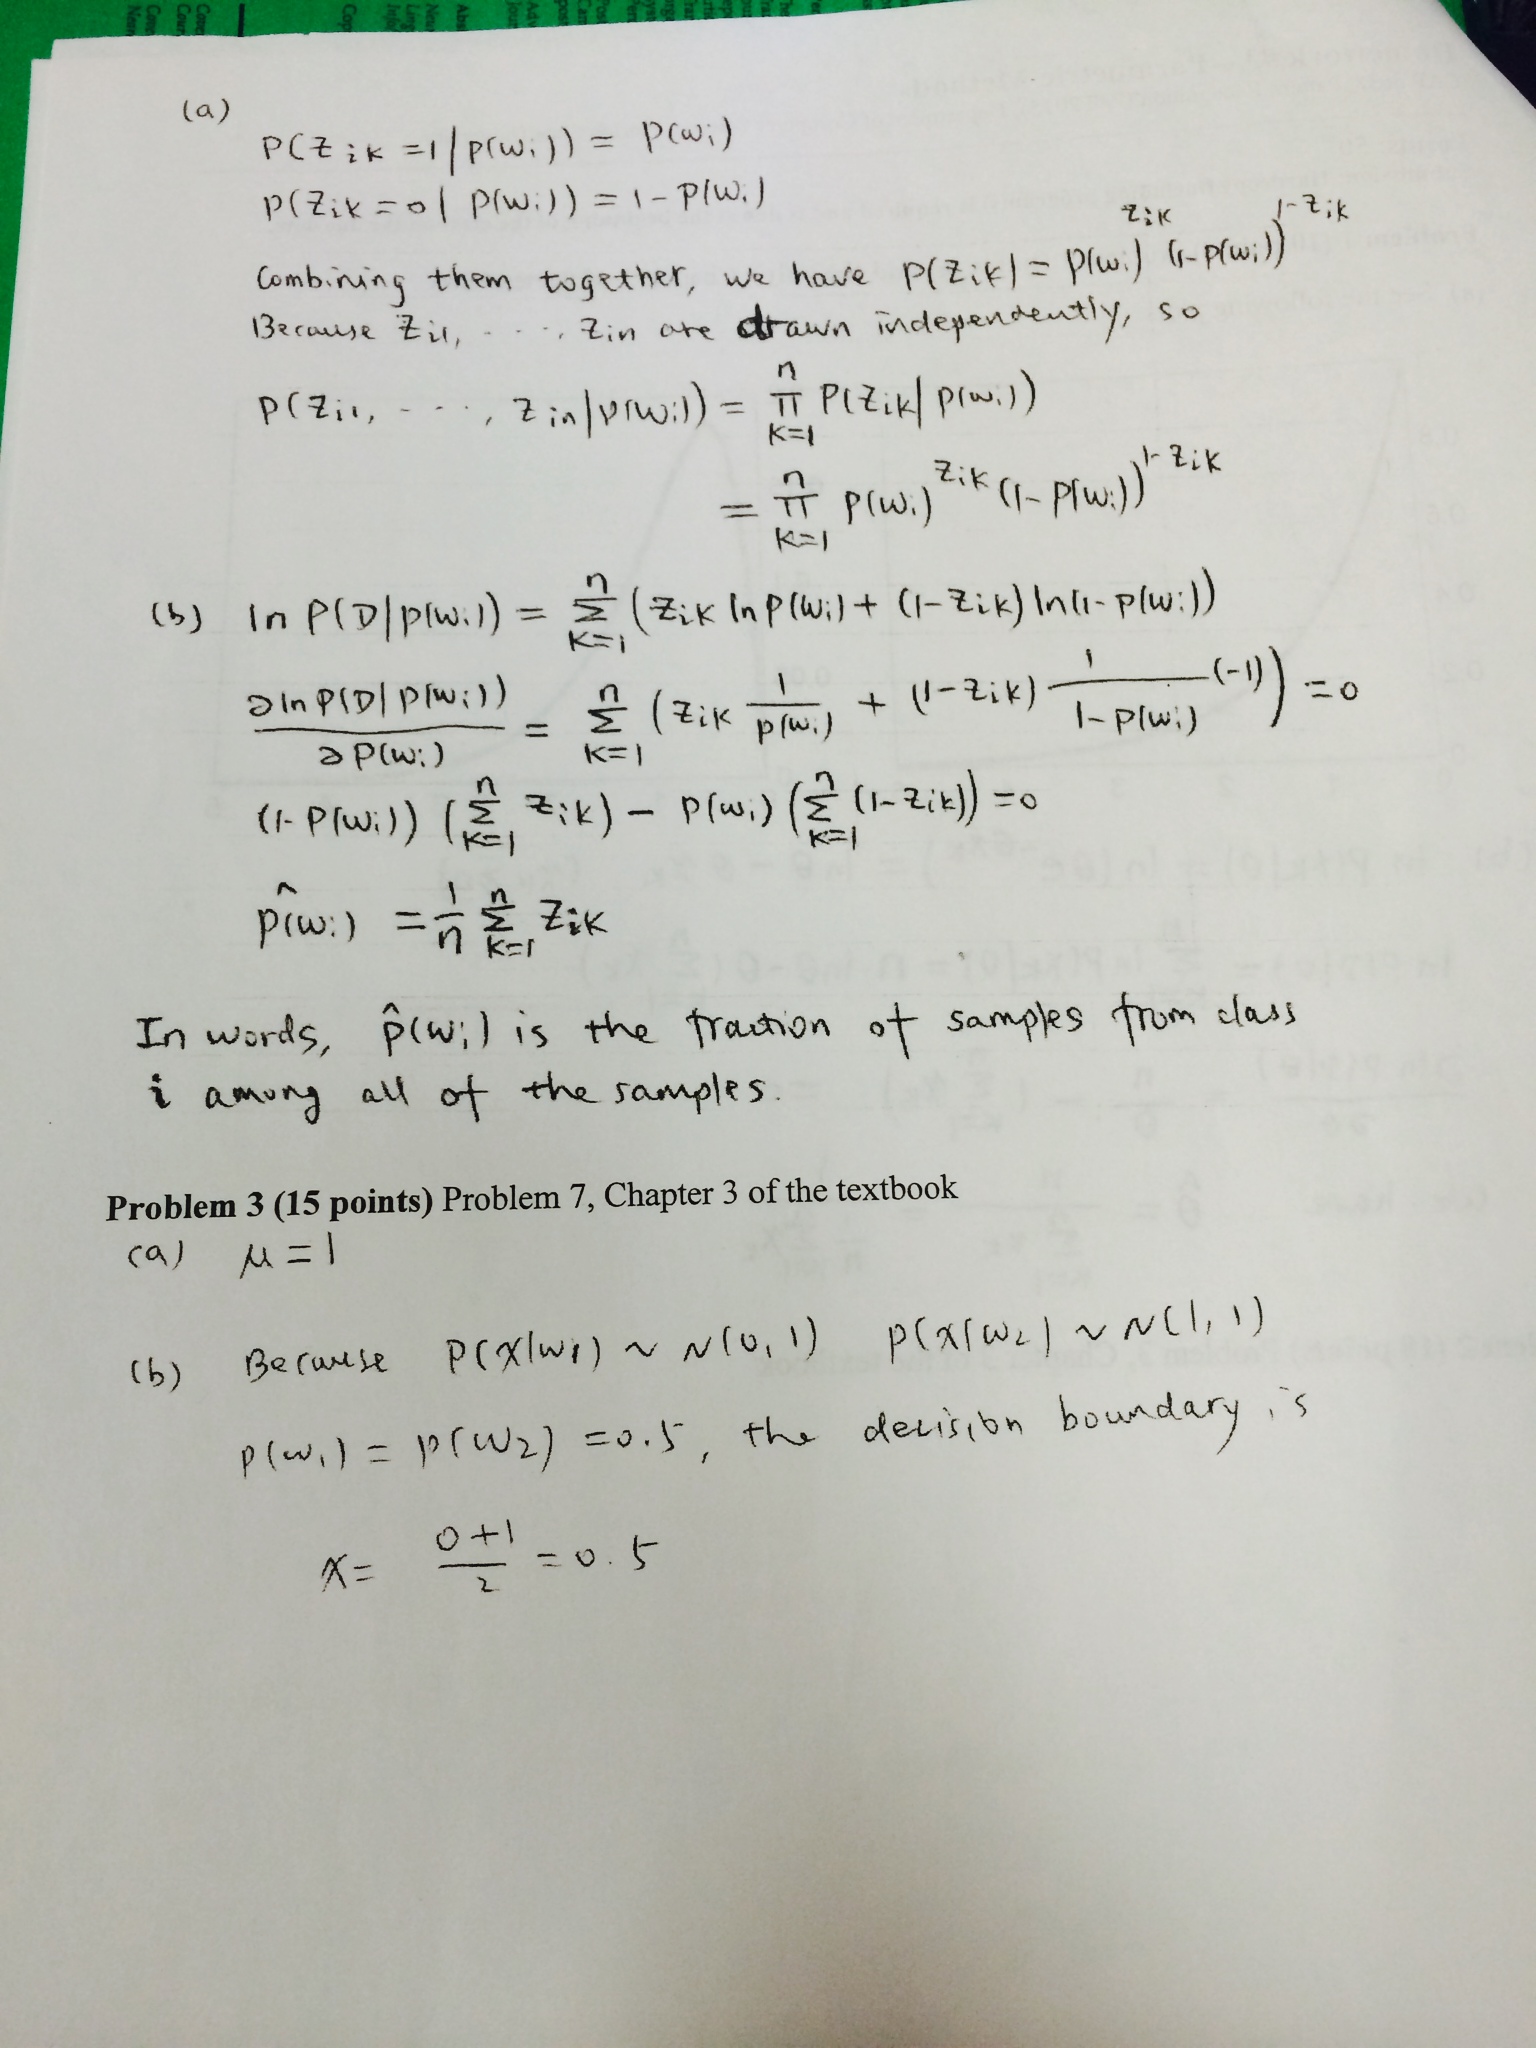 (a)
P(Zik=1|P(wi)) = P(wi)
P(Zik=0|P(wi)) = 1-P(wi)
Combining them together, we have P(Zik|= P(wi)^Zik (1-P(wi))^1-Zik
Because Zi1, ----, Zin are drawn independently, so
P(Zi1, ----, Zin|P(wi)) = n Π k=1 P(Zik|P(wi))
= n Π k=1 P(wi)^Zik (1-P(wi))^1-Zik
(b) ln P(D|P(wi)) = n Σ k=1 (Zik ln P(wi) + (1-Zik) ln(1-P(wi))
∂ln P(D|P(wi)) / ∂P(wi) = n Σ k=1 (Zik 1/P(wi) + (1-Zik) 1/1-P(wi) (-1)) = 0
(1-P(wi)) (n Σ k=1 Zik) - P(wi) (n Σ k=1 (1-Zik)) = 0
P̂(wi) = 1/n n Σ k=1 Zik
In words, P̂(wi) is the fraction of samples from class
i among all of the samples.
Problem 3 (15 points) Problem 7, Chapter 3 of the textbook
(a) μ=1
(b) Because P(x|w1) ~ N(0,1) P(x|w2) ~ N(1,1)
P(w1) = P(w2) = 0.5, the decision boundary is
x = 0+1/2 = 0.5